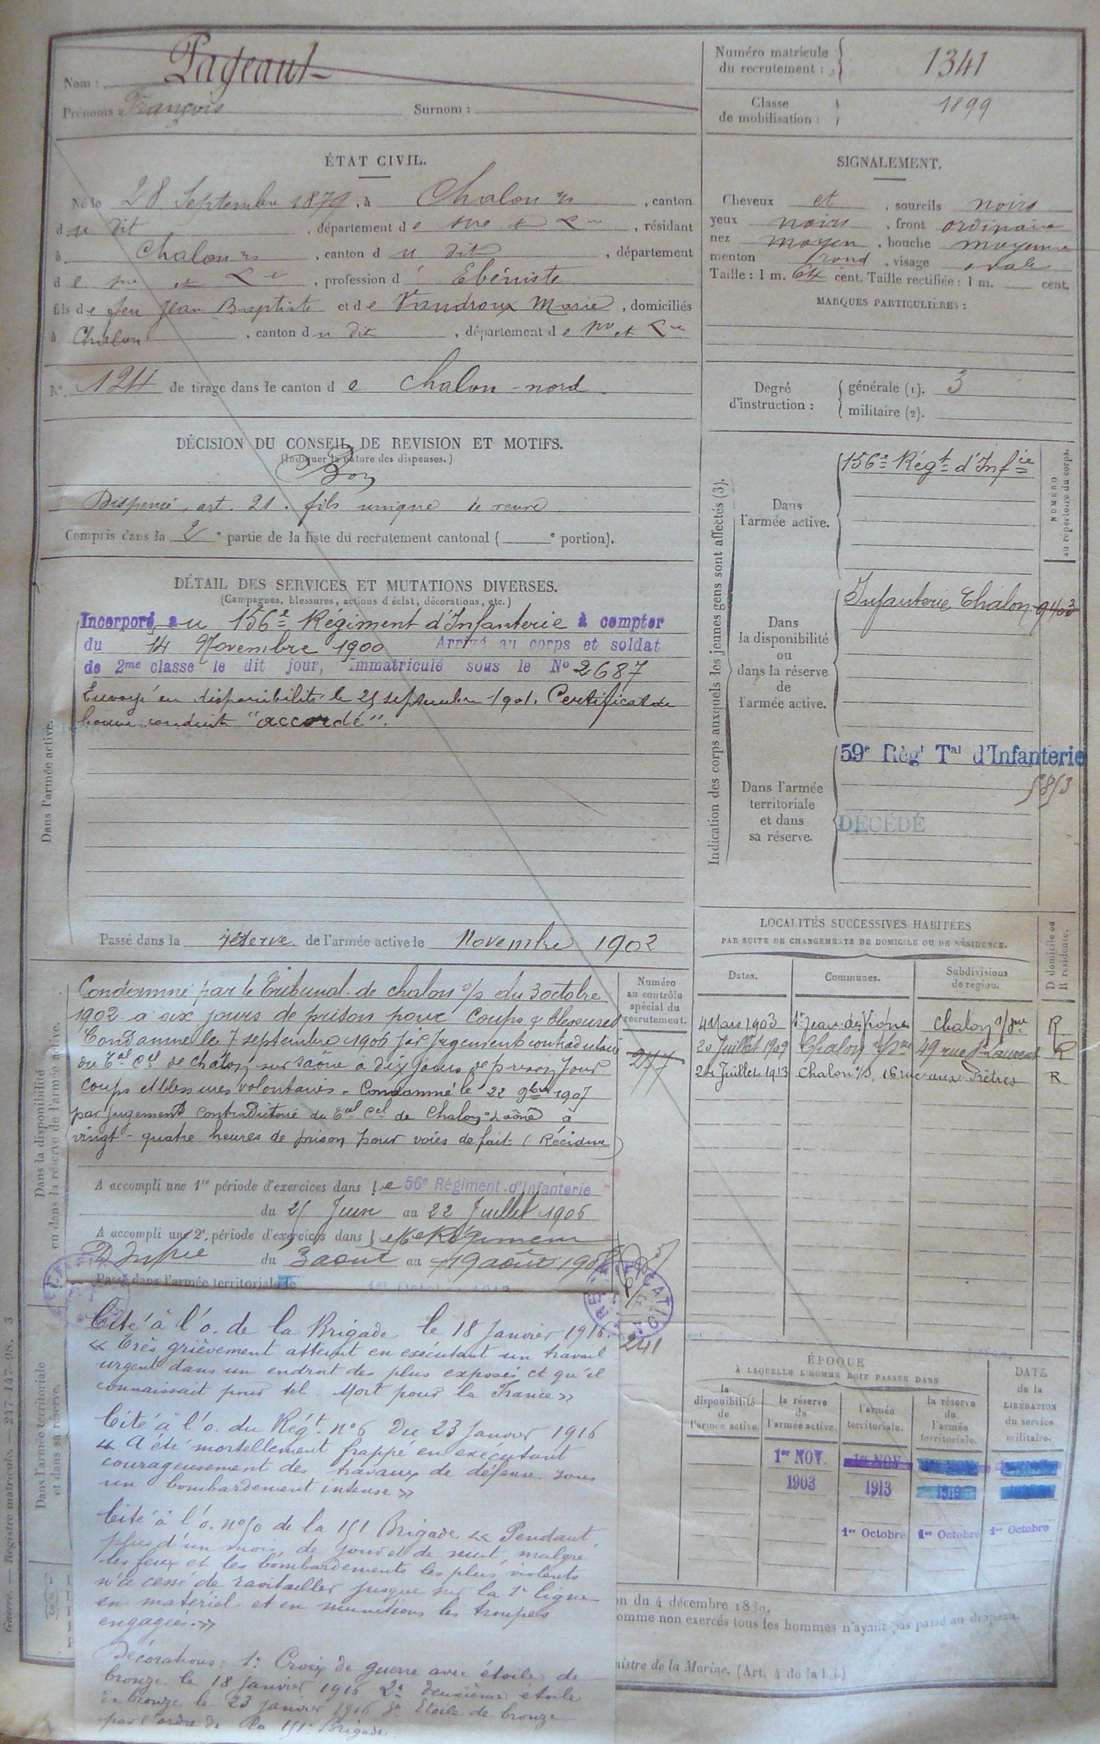 Nom : Pageaut
Prénoms : François Surnom :
Numéro matricule du recrutement : 1341
Classe de mobilisation : 1899
ÉTAT CIVIL.
Né le 28 Septembre 1879, à Chalon s/s, canton
du dit, département de Sne et Lre, résidant
à Chalon s/s, canton du dit, département
de Sne et Lre, profession d' Ébéniste
fils de feu Jean Baptiste et de Vandroux Marie, domiciliés
à Chalon, canton du dit, département de Sne et Lre
N° 124 de tirage dans le canton de Chalon-nord.
SIGNALEMENT.
Cheveux et, sourcils noirs
yeux noirs, front ordinaire
nez moyen, bouche moyenne
menton rond, visage ovale
Taille : 1 m. 64 cent. Taille rectifiée : 1 m. cent.
MARQUES PARTICULIÈRES :
Degré d'instruction : générale (1). 3
militaire (2).
DÉCISION DU CONSEIL DE REVISION ET MOTIFS.
(Indiquer la nature des dispenses.)
Bon
Dispensé, art. 21. fils unique de veuve
Compris dans la 2e partie de la liste du recrutement cantonal ( e portion).
DÉTAIL DES SERVICES ET MUTATIONS DIVERSES.
(Campagnes, blessures, actions d'éclat, décorations, etc.)
Dans l'armée active.
Incorporé au 156e Régiment d'Infanterie à compter
du 14 Novembre 1900 Arrivé au corps et soldat
de 2me classe le dit jour, Immatriculé sous le No 2687
Envoyé en disponibilité le 21 septembre 1901. Certificat de
bonne conduite "accordé".
Passé dans la réserve de l'armée active le Novembre 1902
Indication des corps auxquels les jeunes gens sont affectés (3).
NUMÉRO au répertoire du corps.
Dans l'armée active.
156e Régt d'Infie
Dans la disponibilité ou dans la réserve de l'armée active.
Infanterie Chalon
Dans l'armée territoriale et dans sa réserve.
59e Régt Tal d'Infanterie
5853
DÉCÉDÉ
Dans la disponibilité ou dans la réserve de l'armée active.
Numéro au contrôle spécial du recrutement.
Condamné par le Tribunal de Chalon s/s du 3 octobre
1902 à six jours de prison pour Coups & blessures
Condamné le 7 septembre 1906 par jugement contradictoire
du Tal Cel de Chalon sur Saône à dix jours de prison pour
coups et blessures volontaires. Condamné le 22 9bre 1907
par jugement contradictoire du Tal Cel de Chalon s Saône à
vingt-quatre heures de prison pour voies de fait (Récidive)
A accompli une 1re période d'exercices dans le 56e Régiment d'Infanterie
du 25 Juin au 22 Juillet 1906
A accompli une 2e période d'exercices dans le Régiment
D'Infie du 3 aout au 19 août
Passé dans l'armée territoriale le
241
LOCALITÉS SUCCESSIVES HABITÉES
PAR SUITE DE CHANGEMENTS DE DOMICILE OU DE RÉSIDENCE.
Dates. Communes. Subdivisions de région. D domicile ou R résidence.
4 Mars 1903 St Jean des Vignes Chalon s/Sne R
20 Juillet 1909 Chalon s/Sne 49 rue St Laurent R
Juillet 1913 Chalon s/s, 16 rue aux Prêtres R
Dans l'armée territoriale et dans sa réserve.
Cité à l'o. de la Brigade le 18 Janvier 1916.
« Très grièvement atteint en exécutant un travail
urgent dans un endroit des plus exposés et qu'il
connaissait pour tel. Mort pour la France »
Cité à l'o. du Régt n°6 du 23 Janvier 1916
« A été mortellement frappé en exécutant
courageusement des travaux de défense sous
un bombardement intense »
Cité à l'o. n°50 de la 151 Brigade « Pendant
plus d'un mois, de jour et de nuit, malgré
les feux et les bombardements les plus violents
n'a cessé de ravitailler jusque sur la 1e ligne
en matériel et en munitions les troupes
engagées. »
Décorations : 1° Croix de guerre avec étoile de
bronze le 18 Janvier 1916 2° deuxième étoile
de bronze le 23 Janvier 1916 3e Etoile de bronze
par l'ordre de la 151e Brigade.
ÉPOQUE
À LAQUELLE L'HOMME DOIT PASSER DANS
la disponibilité de l'armée active. la réserve de l'armée active. l'armée territoriale. la réserve de l'armée territoriale. DATE de la LIBÉRATION du service militaire.
1er NOV. 1903 1er NOV. 1913
1er Octobre 1er Octobre 1er Octobre
on du 4 décembre 1889.
omme non exercés tous les hommes n'ayant pas passé au drapeau.
nistre de la Marine. (Art. 4 de la loi.)
Guerre. — Registre matricule. 247-147-98. 3